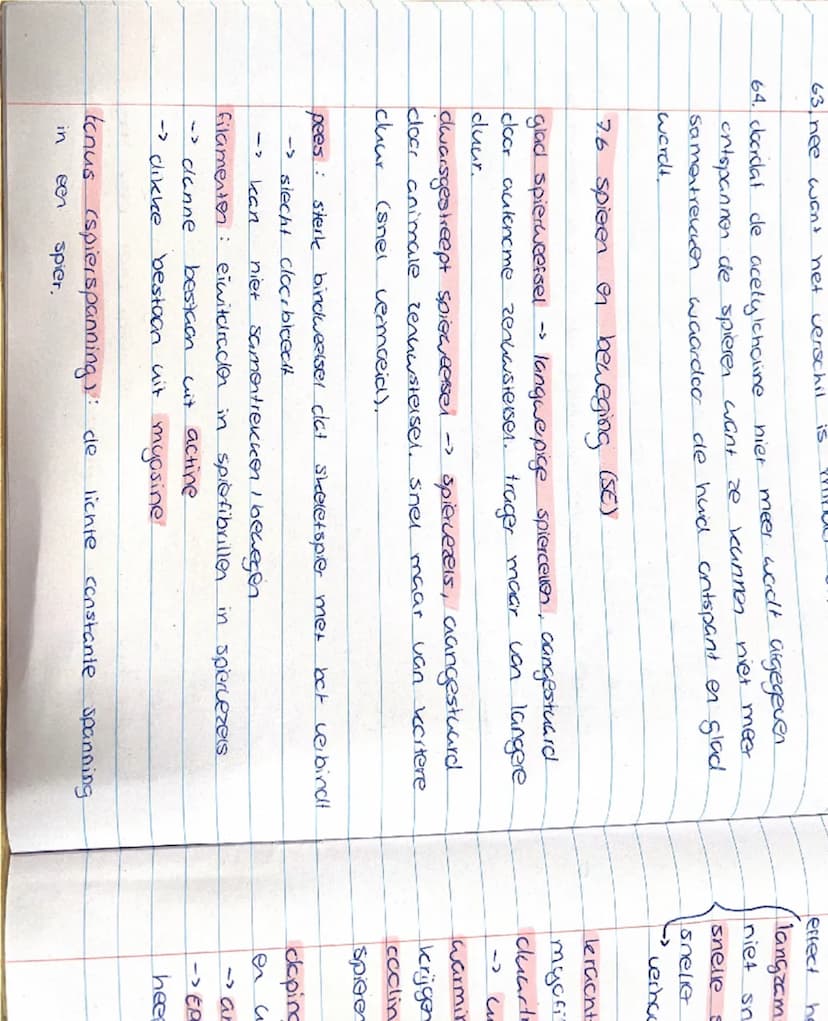 63. nee want het verschil is
64. doordat de acetylcholine niet meer wordt afgegeven
ontspannen de spieren want ze kunnen niet meer
samentrekken waardoor de huid ontspant en glad
wordt.
7.6 spieren en beweging (SE)
glad spierweefsel -> langwerpige spiercellen, aangestuurd
door autonome zenuwstelsel. trager maar van langere
duur.
dwarsgestreept spierweefsel -> spiervezels, aangestuurd
door animale zenuwstelsel. snel maar van kortere
duur (snel vermoeid).
pees: sterk bindweefsel dat skeletspier met bot verbindt
-> slecht doorbloedt
-> kan niet samentrekken/bewegen
filamenten: eiwitdraden in spierfibrillen in spiervezels
-> dunne bestaan uit actine
-> dikke bestaan uit myosine
tonus (spierspanning): de lichte constante spanning
in een spier.
effect
langzam
niet sn
snelle s
sneller
->
kracht
myofi
duurt
->
warmi
krijgen
coolin
spieren
doping
en
->
-> EP